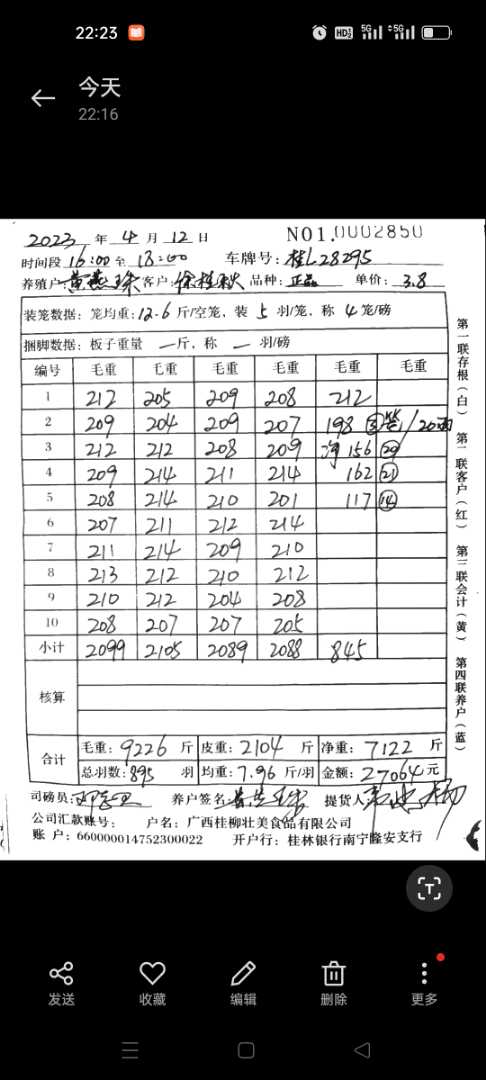 22:23
HD 5G 5G
今天
22:16
2023 年 4 月 12 日 NO1.0002850
时间段 16:00 至 18:00 车牌号: 桂L28295
养殖户: 黄燕珠 客户: 徐桂秋 品种: 正品 单价: 3.8
装笼数据: 笼均重: 12.6 斤/空笼, 装 5 羽/笼, 称 4 笼/磅
捆脚数据: 板子重量 一 斤, 称 一 羽/磅
编号 毛重 毛重 毛重 毛重 毛重 毛重
1 212 205 209 208 212
2 209 204 209 207 198 ③ /20
3 212 212 208 209 净156 ⑳
4 209 214 211 214 162 ㉑
5 208 214 210 201 117 ⑭
6 207 211 212 214
7 211 214 209 210
8 213 212 210 212
9 210 212 204 208
10 208 207 207 205
小计 2099 2105 2089 2088 845
核算
合计 毛重: 9226 斤 皮重: 2104 斤 净重: 7122 斤
总羽数: 895 羽 均重: 7.96 斤/羽 金额: 27064 元
司磅员: 养户签名: 提货人:
公司汇款账号: 户名: 广西桂柳壮美食品有限公司
账 户: 660000014752300022 开户行: 桂林银行南宁隆安支行
第一联存根(白) 第二联客户(红) 第三联会计(黄) 第四联养户(蓝)
T
发送 收藏 编辑 删除 更多